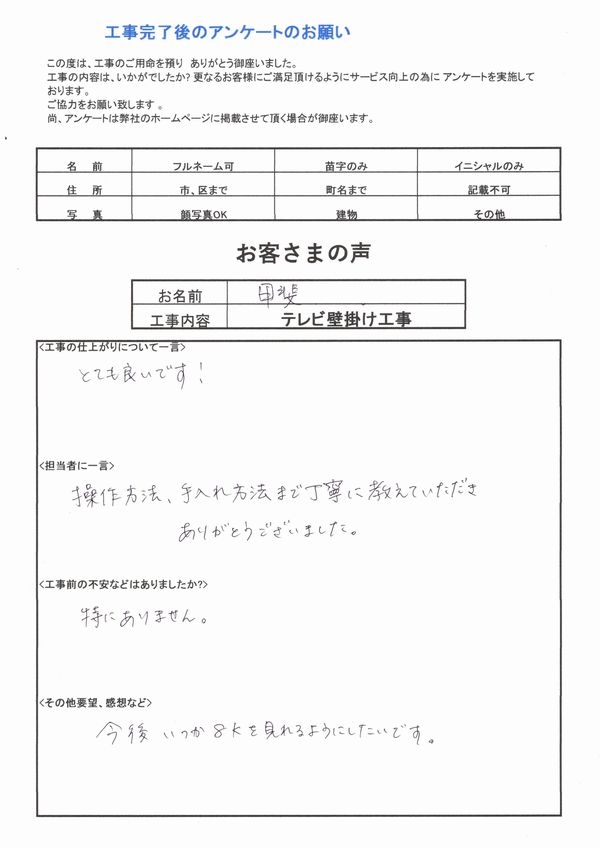 工事完了後のアンケートのお願い
この度は、工事のご用命を預り ありがとう御座いました。
工事の内容は、いかがでしたか? 更なるお客様にご満足頂けるようにサービス向上の為に アンケートを実施して
おります。
ご協力をお願い致します 。
尚、アンケートは弊社のホームページに掲載させて頂く場合が御座います。
名 前 フルネーム可 苗字のみ イニシャルのみ
住 所 市、区まで 町名まで 記載不可
写 真 顔写真OK 建物 その他
お客さまの声
お名前 甲斐
工事内容 テレビ壁掛け工事
<工事の仕上がりについて一言>
とても良いです!
<担当者に一言>
操作方法、手入れ方法まで丁寧に教えていただき
ありがとうございました。
<工事前の不安などはありましたか?>
特にありません。
<その他要望、感想など>
今後 いつか 8Kを見れるようにしたいです。